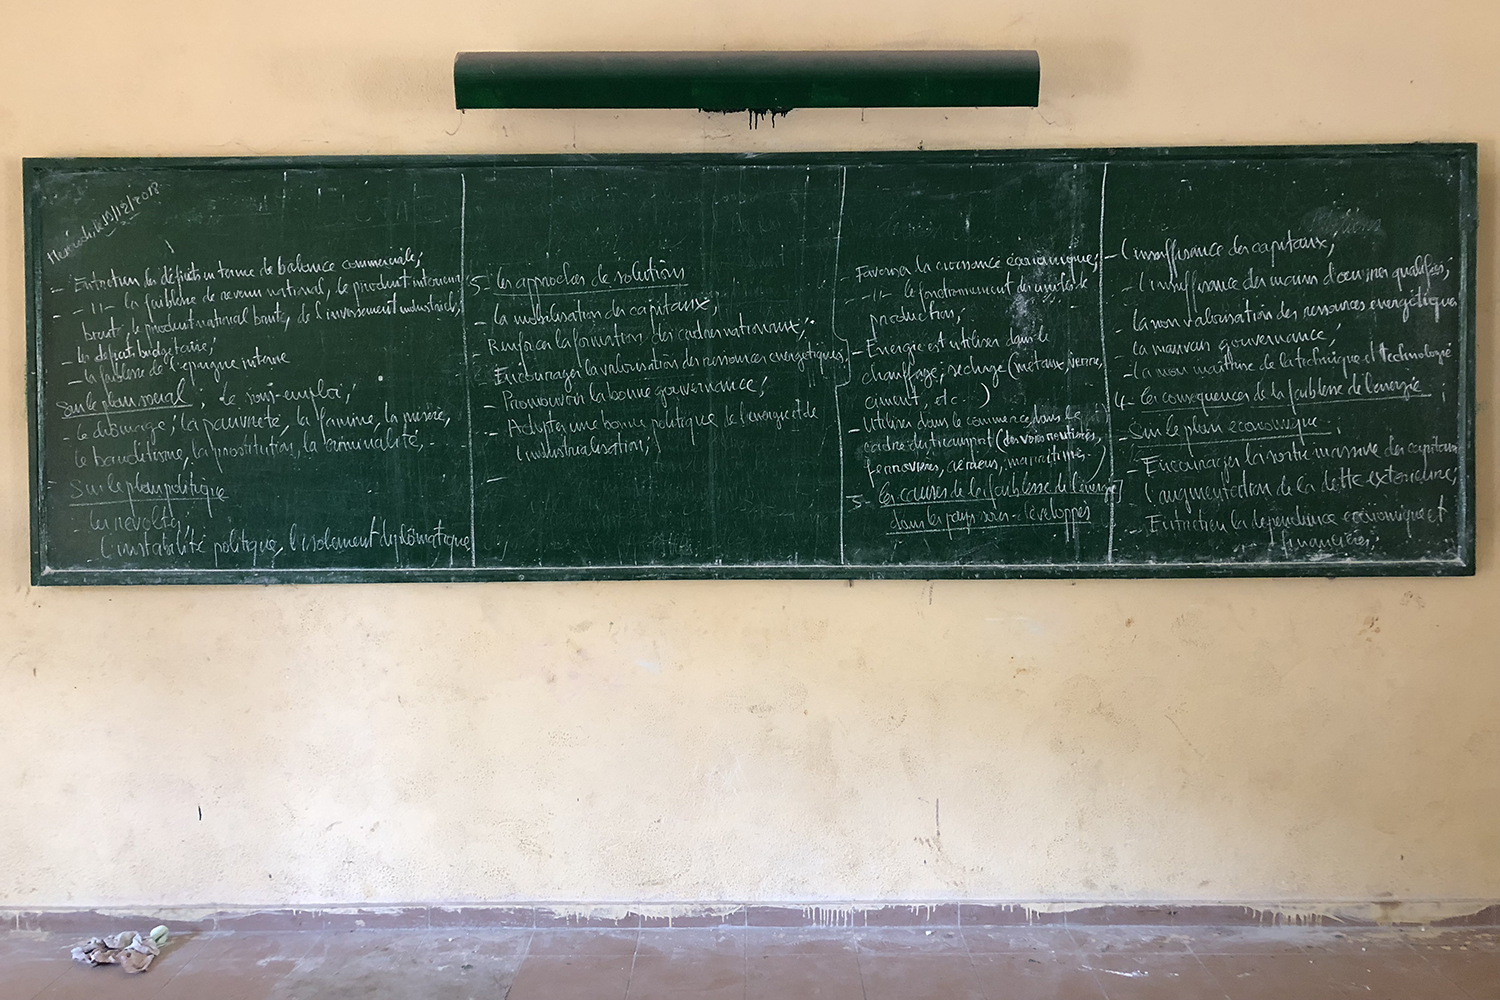 Mercredi, le 19/12/2018
- Entretien les déficits en terme de balance commerciale;
- -11- la faiblesse de revenu national, le produit intérieur
brut, le produit national brute, de l'investissement industriels;
- les déficits budgétaire;
- la faiblesse de l'épargne interne
Sur le plan social, le sous-emploi;
- le chômage; la pauvreté, la famine, la misère,
le banditisme, la prostitution, la criminalité,
- Sur le plan politique
les révoltes,
l'instabilité politique, l'isolement diplômatique
5- les approches de solutions
- la mobilisation des capitaux;
- Renforcer la formation des cadres nationaux;
- Encourager la valorisation des ressources energétiques,
- Promouvoir la bonne gouvernance;
- Adopter une bonne politique de l'énergie et de
l'industrialisation;
-
Favoriser la croissance économique;
- -11- le fonctionnement des unités de
production;
- Énergie est utiliser dans le
chauffage, séchage (métaux, verre,
ciment, etc...)
- Utiliser dans le commerce dans le
cadre du transport (des voies routières,
ferroviaires, aériens, maritime..)
3- les causes de la faiblesse de l'énergie
dans les pays sous-développés
- l'insuffisance des capitaux;
- l'insuffisance des mains d'oeuvres qualifiés;
- la non valorisation des ressources energétiques
- la mauvais gouvernance;
- la non maîtrise de la technique et technologie
4- les consequences de la faiblesse de l'énergie;
- Sur le plan economique;
- Encourager la sortie massive des capitaux
l'augmentation de la dette extérieure;
- Entretien la dependance economique et
financières;